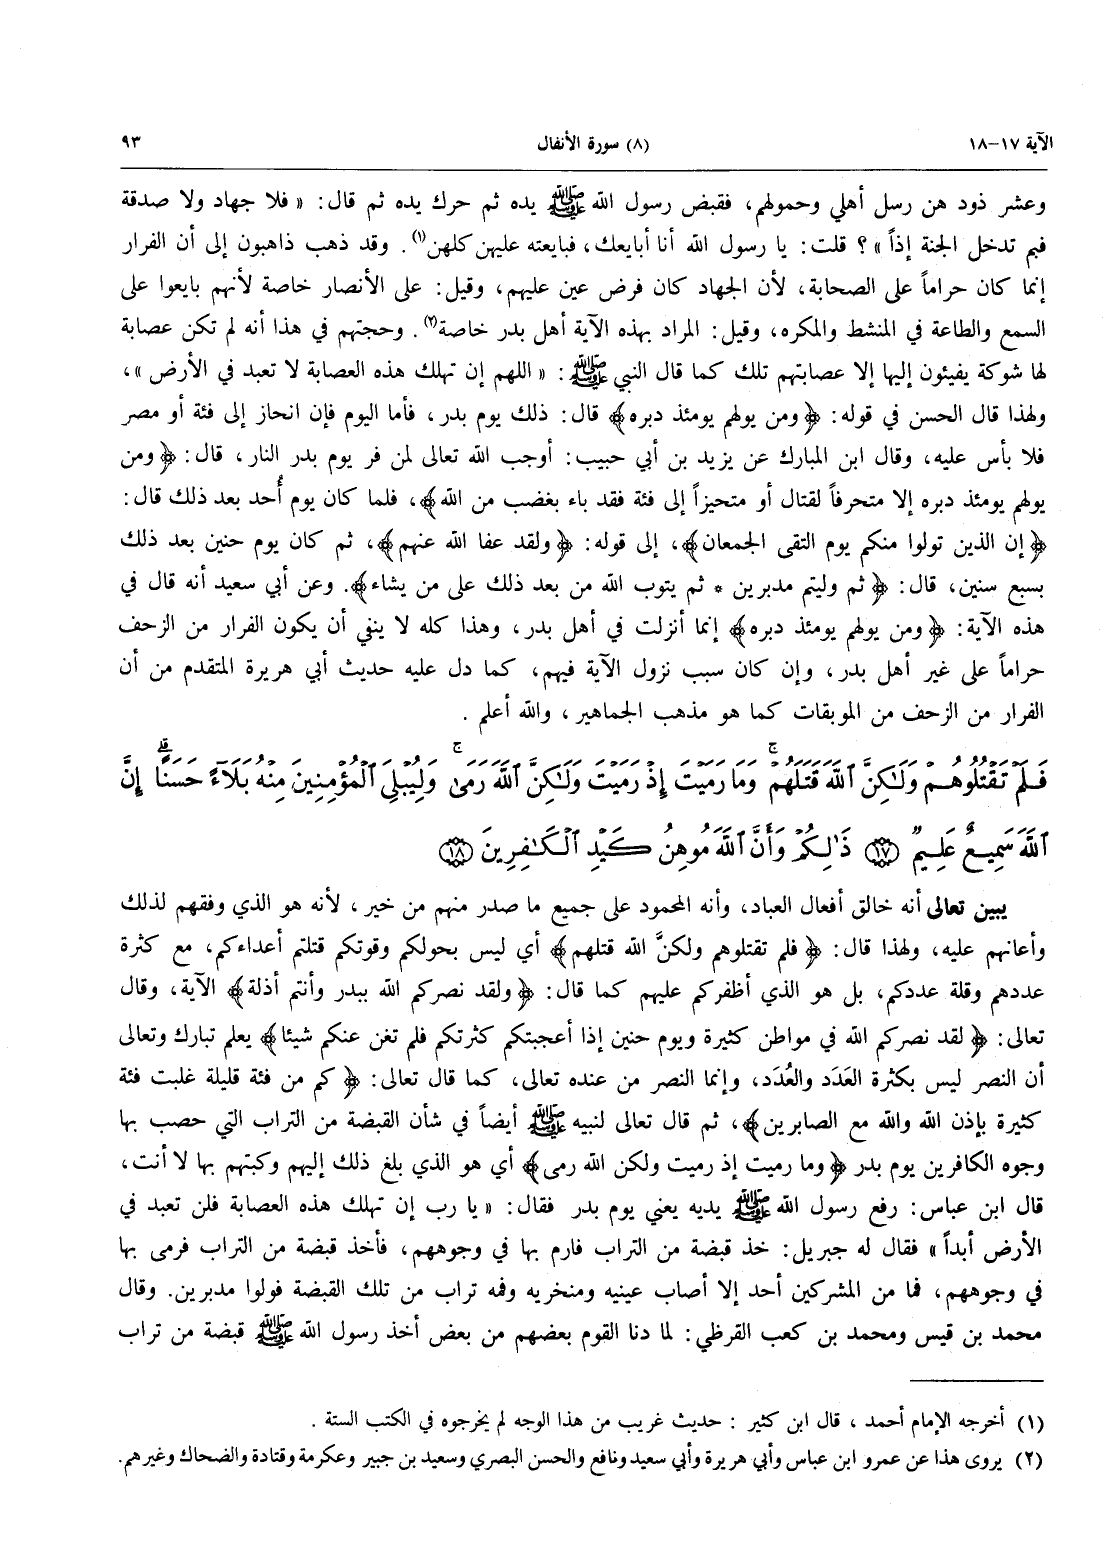 الآية ١٧-١٨ (٨) سورة الأنفال ٩٣
وعشر ذود هن رسل أهلي وحمولهم، فقبض رسول الله ﷺ يده ثم حرك يده ثم قال: « فلا جهاد ولا صدقة
فبم تدخل الجنة إذاً »؟ قلت: يا رسول الله أنا أبايعك، فبايعته عليهن كلهن(١). وقد ذهب ذاهبون إلى أن الفرار
إنما كان حراماً على الصحابة، لأن الجهاد كان فرض عين عليهم، وقيل: على الأنصار خاصة لأنهم بايعوا على
السمع والطاعة في المنشط والمكره، وقيل: المراد بهذه الآية أهل بدر خاصة(٢). وحجتهم في هذا أنه لم تكن عصابة
لها شوكة يفيئون إليها إلا عصابتهم تلك كما قال النبي ﷺ: « اللهم إن تهلك هذه العصابة لا تعبد في الأرض »،
ولهذا قال الحسن في قوله: ﴿ومن يولهم يومئذ دبره﴾ قال: ذلك يوم بدر، فأما اليوم فإن انحاز إلى فئة أو مصر
فلا بأس عليه، وقال ابن المبارك عن يزيد بن أبي حبيب: أوجب الله تعالى لمن فر يوم بدر النار، قال: ﴿ومن
يولهم يومئذ دبره إلا متحرفاً لقتال أو متحيزاً إلى فئة فقد باء بغضب من الله﴾، فلما كان يوم أُحد بعد ذلك قال:
﴿إن الذين تولوا منكم يوم التقى الجمعان﴾، إلى قوله: ﴿ولقد عفا الله عنهم﴾، ثم كان يوم حنين بعد ذلك
بسبع سنين، قال: ﴿ثم وليتم مدبرين * ثم يتوب الله من بعد ذلك على من يشاء﴾. وعن أبي سعيد أنه قال في
هذه الآية: ﴿ومن يولهم يومئذ دبره﴾ إنما أنزلت في أهل بدر، وهذا كله لا ينفي أن يكون الفرار من الزحف
حراماً على غير أهل بدر، وإن كان سبب نزول الآية فيهم، كما دل عليه حديث أبي هريرة المتقدم من أن
الفرار من الزحف من الموبقات كما هو مذهب الجماهير، والله أعلم .
فَلَمْ تَقْتُلُوهُمْ وَلَٰكِنَّ ٱللَّهَ قَتَلَهُمْ ۚ وَمَا رَمَيْتَ إِذْ رَمَيْتَ وَلَٰكِنَّ ٱللَّهَ رَمَىٰ ۚ وَلِيُبْلِيَ ٱلْمُؤْمِنِينَ مِنْهُ بَلَآءً حَسَنًا ۚ إِنَّ
ٱللَّهَ سَمِيعٌ عَلِيمٌ ﴿١٧﴾ ذَٰلِكُمْ وَأَنَّ ٱللَّهَ مُوهِنُ كَيْدِ ٱلْكَٰفِرِينَ ﴿١٨﴾
يبين تعالى أنه خالق أفعال العباد، وأنه المحمود على جميع ما صدر منهم من خير، لأنه هو الذي وفقهم لذلك
وأعانهم عليه، ولهذا قال: ﴿فلم تقتلوهم ولكنَّ الله قتلهم﴾ أي ليس بحولكم وقوتكم قتلتم أعداءكم، مع كثرة
عددهم وقلة عددكم، بل هو الذي أظفركم عليهم كما قال: ﴿ولقد نصركم الله ببدر وأنتم أذلة﴾ الآية، وقال
تعالى: ﴿لقد نصركم الله في مواطن كثيرة ويوم حنين إذا أعجبتكم كثرتكم فلم تغن عنكم شيئا﴾ يعلم تبارك وتعالى
أن النصر ليس بكثرة العَدَد والعُدَد، وإنما النصر من عنده تعالى، كما قال تعالى: ﴿كم من فئة قليلة غلبت فئة
كثيرة بإذن الله والله مع الصابرين﴾، ثم قال تعالى لنبيه ﷺ أيضاً في شأن القبضة من التراب التي حصب بها
وجوه الكافرين يوم بدر ﴿وما رميت إذ رميت ولكن الله رمى﴾ أي هو الذي بلغ ذلك إليهم وكبتهم بها لا أنت،
قال ابن عباس: رفع رسول الله ﷺ يديه يعني يوم بدر فقال: « يا رب إن تهلك هذه العصابة فلن تعبد في
الأرض أبداً » فقال له جبريل: خذ قبضة من التراب فارم بها في وجوههم، فأخذ قبضة من التراب فرمى بها
في وجوههم، فما من المشركين أحد إلا أصاب عينيه ومنخريه وفمه تراب من تلك القبضة فولوا مدبرين. وقال
محمد بن قيس ومحمد بن كعب القرظي: لما دنا القوم بعضهم من بعض أخذ رسول الله ﷺ قبضة من تراب
(١) أخرجه الإمام أحمد ، قال ابن كثير : حديث غريب من هذا الوجه لم يخرجوه في الكتب الستة .
(٢) يروى هذا عن عمرو ابن عباس وأبي هريرة وأبي سعيد ونافع والحسن البصري وسعيد بن جبير وعكرمة وقتادة والضحاك وغيرهم.